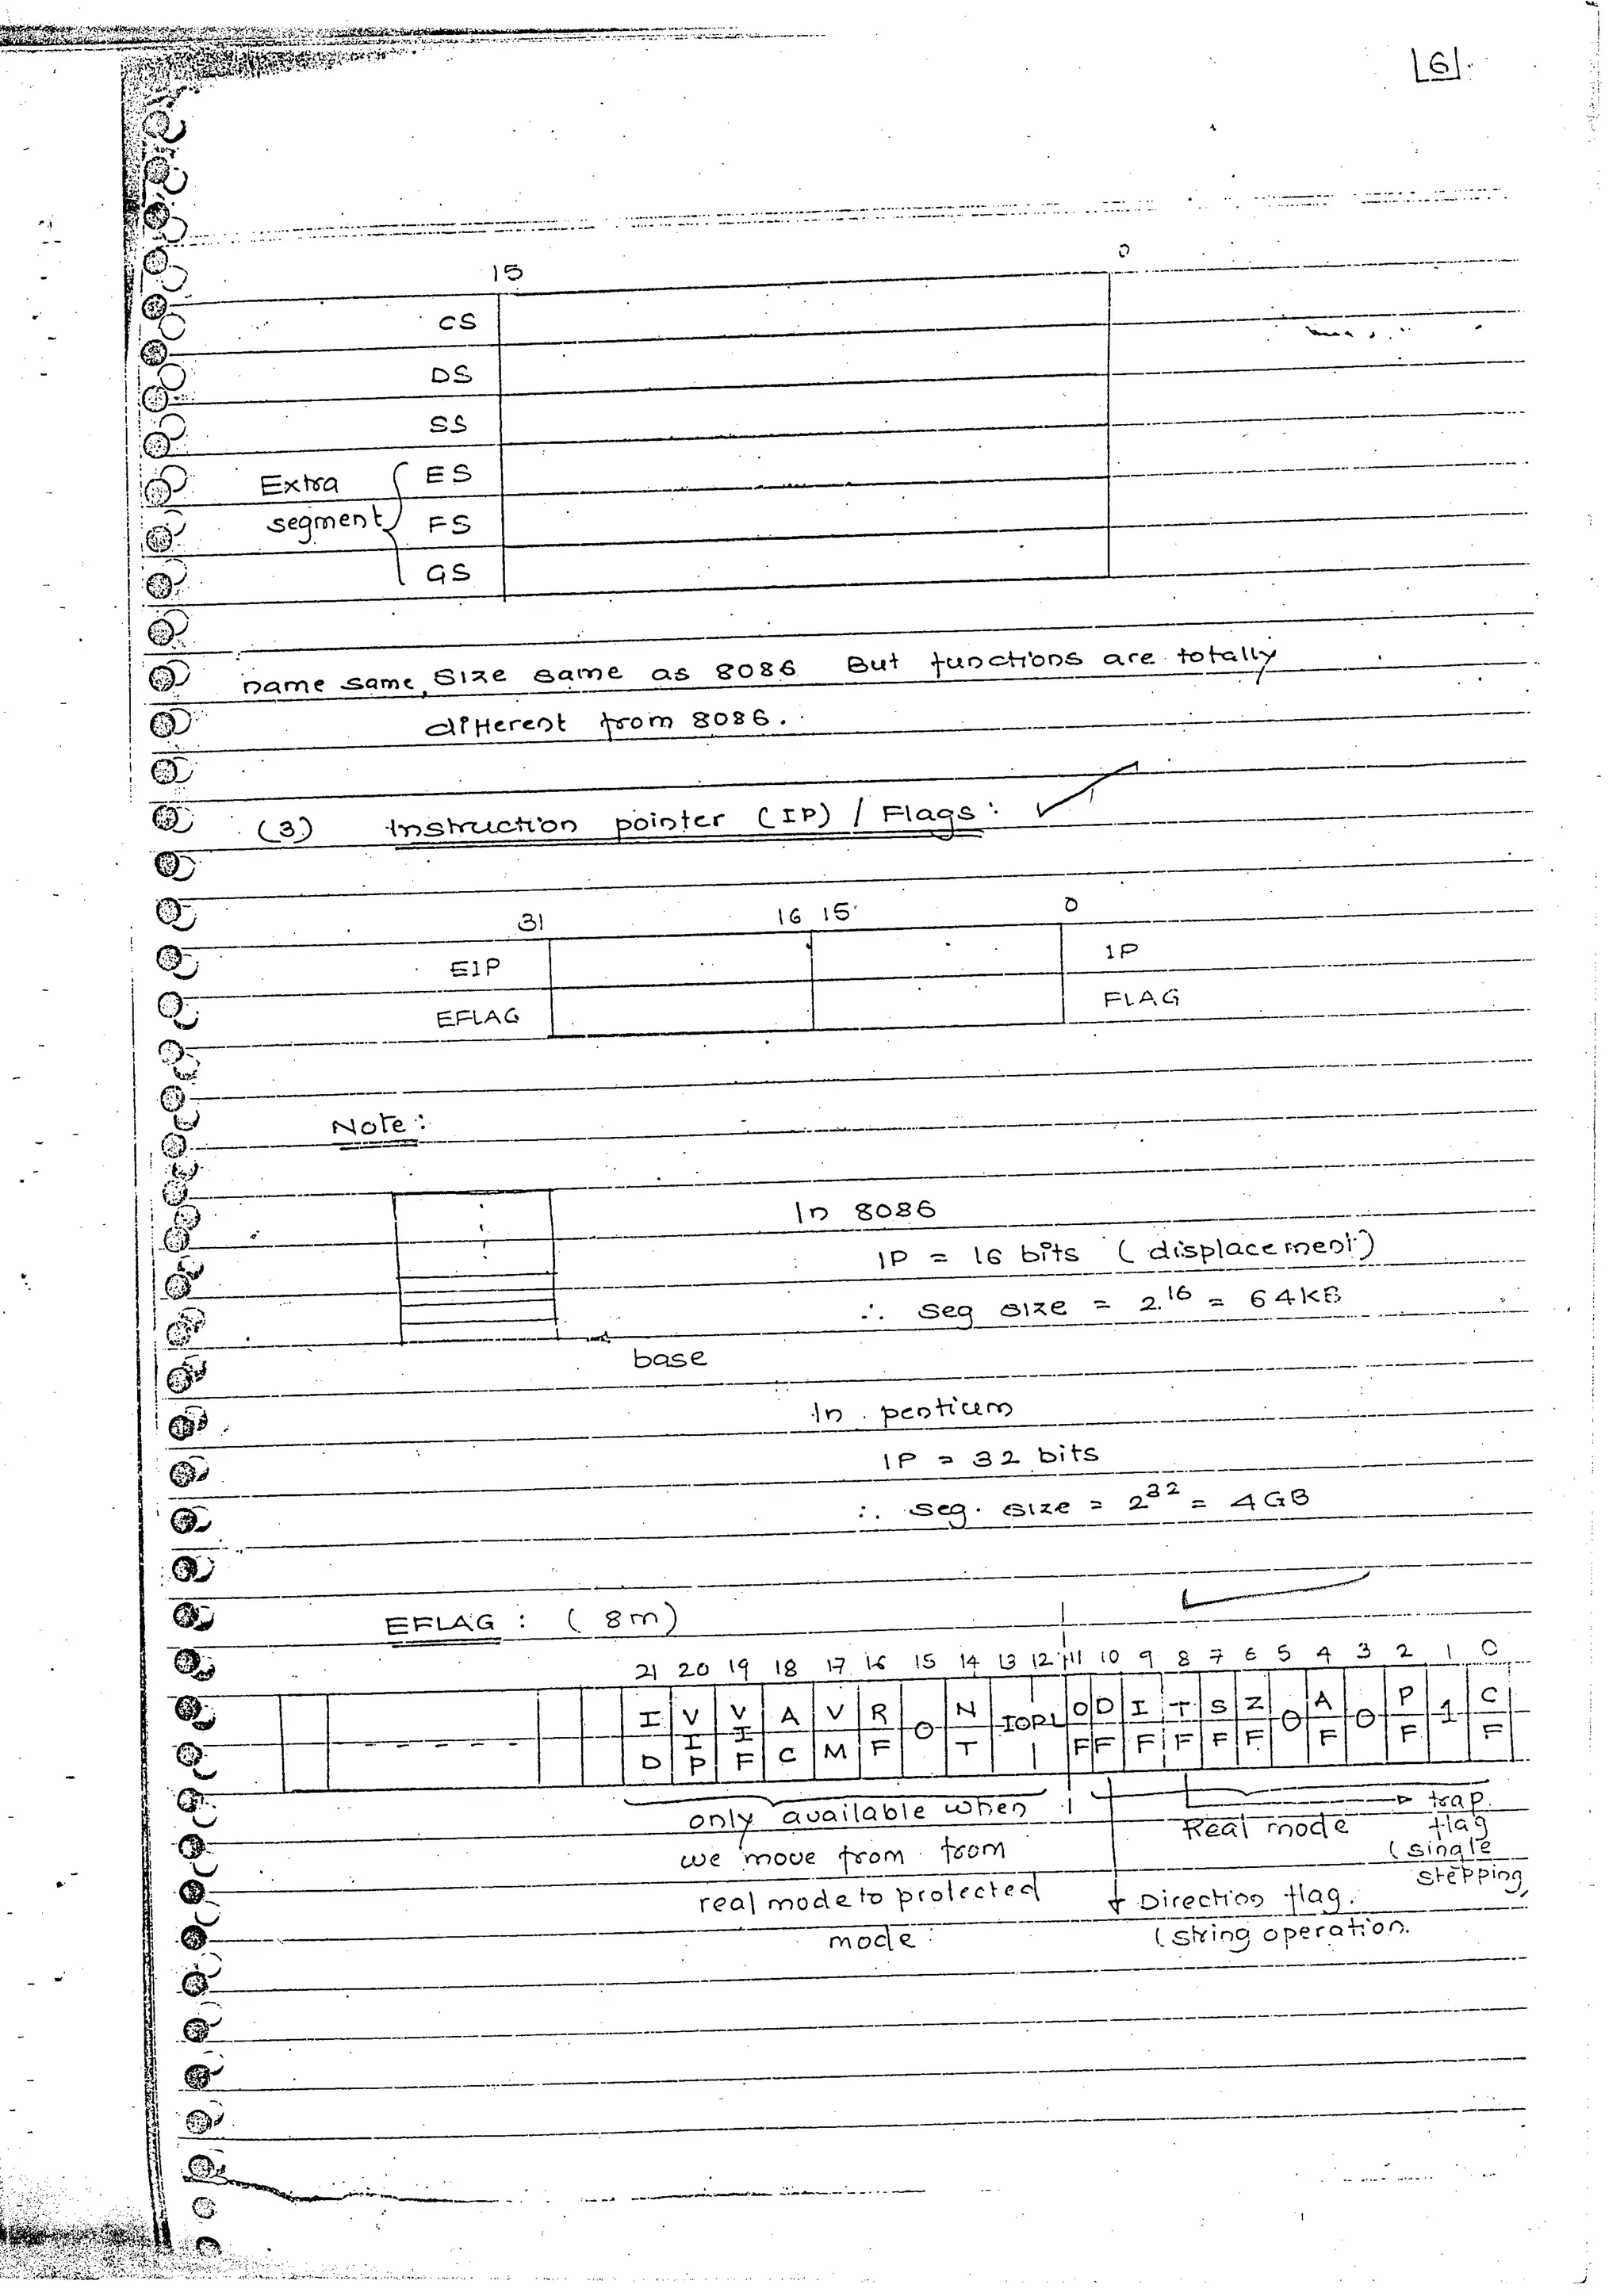 6
15 0
CS
DS
SS
Extra ES
segment FS
GS
name same, size same as 8086 But functions are totally
different from 8086.
(3) Instruction pointer (IP) / Flags :
31 16 15 0
EIP IP
EFLAG FLAG
Note :
In 8086
IP = 16 bits ( displacement )
∴ seg size = 2^16 = 64KB
base
In pentium
IP = 32 bits
∴ seg. size = 2^32 = 4GB
EFLAG : ( 8m )
21 20 19 18 17 16 15 14 13 12 11 10 9 8 7 6 5 4 3 2 1 0
ID VIP VIF AC VM RF 0 NT IOPL OF DF IF TF SF ZF 0 AF 0 PF 1 CF
only available when
we move from from
real mode to protected
mode
Real mode
trap
flag
( single
stepping
Direction flag.
( string operation.